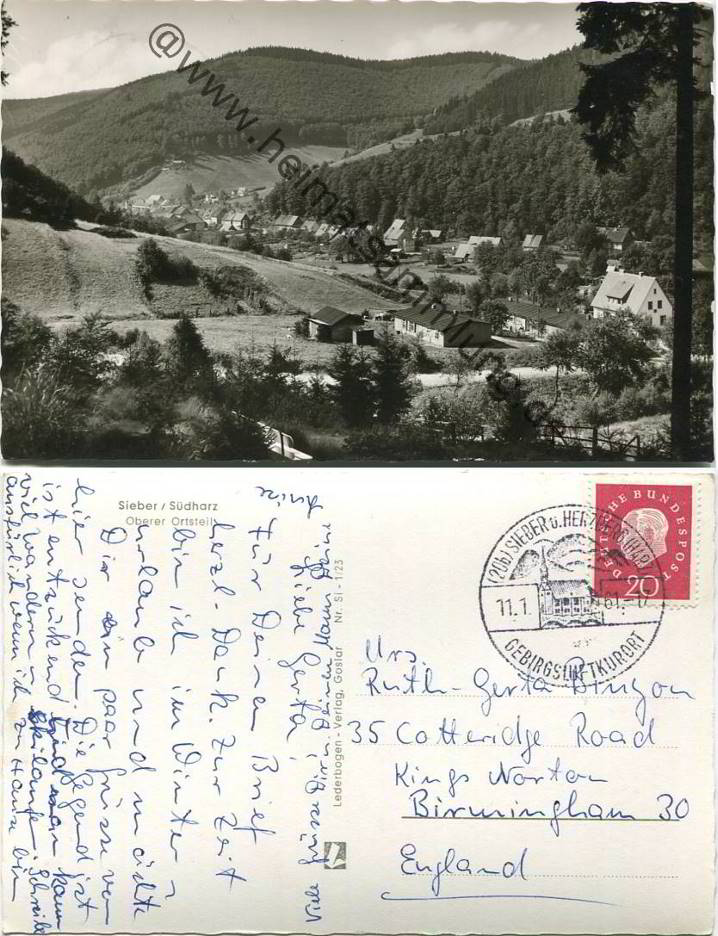 @www.heimatsammlung.de
Sieber / Südharz
Oberer Ortsteil
Liebe Gerta,
für Deinen Brief
herzl. Dank. Zur Zeit
bin ich im Winter
urlaub und möchte
Dir ein paar Grüsse von
hier senden. Die Gegend ist
ist entzückend und man kann
viel wandern u. Skilaufen. Schreibe
ausführlich wenn ich zu Hause bin
Viele
Lederbogen-Verlag, Goslar Nr. SI-1/23
DEUTSCHE BUNDESPOST
20
(20b) SIEBER ü. HERZBERG (HARZ)
11.1. 61
GEBIRGSLUFTKURORT
Mrs.
Ruth-Gerta
35 Cotteridge Road
Kings Norton
Birmingham 30
England